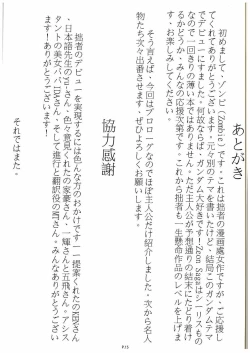 あとがき
初めまして、ゾンビ(Zombi)です。これは拙者の漫画処女作ですが、ご応援し
てくれてありがとうございます。元々別のテーマを書いたけど、結局このガンダムテーマ
でデビューにすました。何故ならば、ガンダム大好きです!Zeon Sagaはシリーズもの
なので一回きりの薄い本ではありません。ただ主人公が予想通りの結末にたどり着け
るかどうか、みんなの応援次第です。これから拙者も一生懸命作品のレベルを上げま
す、お楽しみしてください。
そう言えば、今回はプロローグなのでほぼ主人公だけ紹介しました、次から名人
物たち次々出番させます、ぜひよろしくお願いします。
協力感謝
拙者のデビューを実現するには色んな方のおかげです――提案くれた
、日本語先生の さん、色々意見くれた 豪さん、一輝さんと五飛さん。アシス
タントの美女パン さん、そして進行と翻訳役の さん。みんなありがとうござい
ます!ありがとうございます!
それではまた。